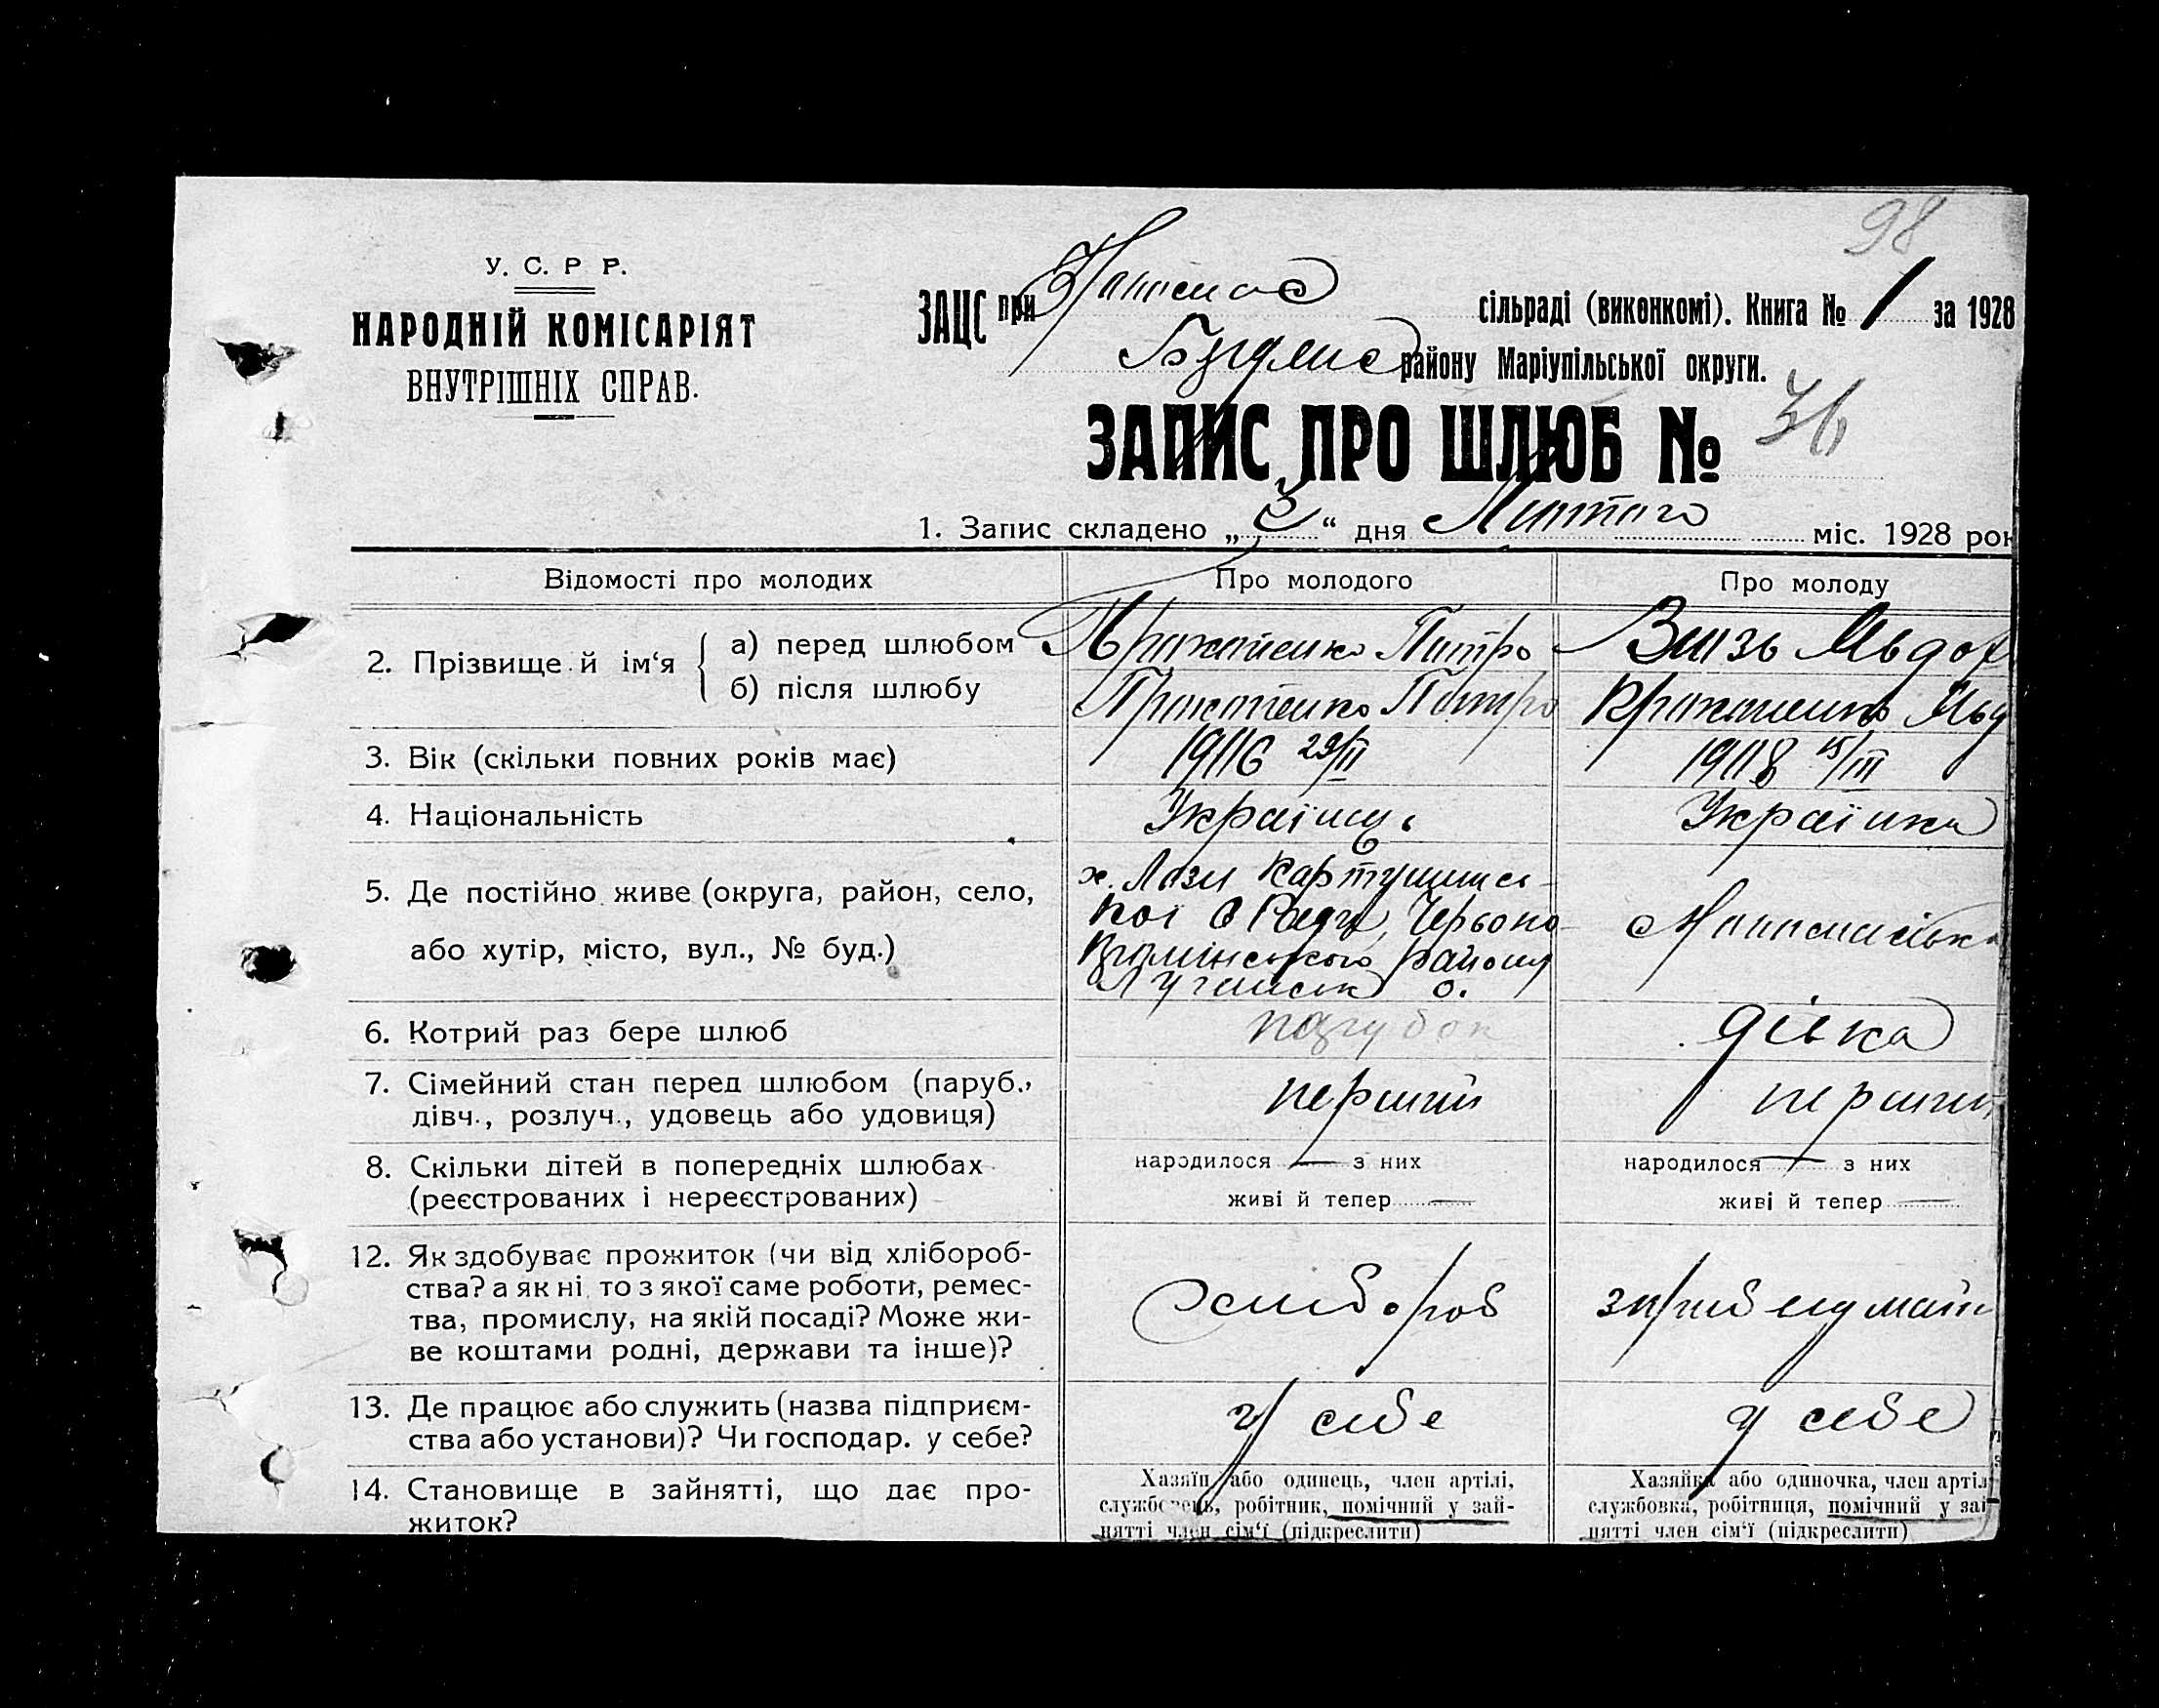 98
У. С. Р Р.
НАРОДНІЙ КОМІСАРІЯТ
ВНУТРІШНІХ СПРАВ.
ЗАЦС при сільраді (виконкомі). Книга № 1 за 1928
району Маріупільської округи.
ЗАПИС ПРО ШЛЮБ № 36
1. Запис складено „ 3 “ дня Лютого міс. 1928 рок
Відомості про молодих Про молодого Про молоду
2. Прізвище й ім‘я { а) перед шлюбом Петро
б) після шлюбу Петро
3. Вік (скільки повних років має) 19 29/II 19 15/III
4. Національність Українець Українка
5. Де постійно живе (округа, район, село,
або хутір, місто, вул., № буд.)
х. Лози Картушинсь-
кої с Ради, Червоно
району
Луганськ о.
6. Котрий раз бере шлюб парубок дівка
7. Сімейний стан перед шлюбом (паруб.,
дівч., розлуч., удовець або удовиця)
перший перший
8. Скільки дітей в попередніх шлюбах
(реєстрованих і нереєстрованих)
народилося — з них
живі й тепер —
народилося — з них
живі й тепер —
12. Як здобуває прожиток (чи від хлібороб-
ства? а як ні то з якої саме роботи, ремес-
тва, промислу, на якій посаді? Може жи-
ве коштами родні, держави та інше)?
хлибороб
13. Де працює або служить (назва підприєм-
ства або установи)? Чи господар. у себе?
у себе у себе
14. Становище в зайнятті, що дає про-
житок?
Хазяїн або одинець, член артілі,
службовець, робітник, помічний у зай-
нятті член сім‘ї (підкреслити)
Хазяйка або одиночка, член артіл
службовка, робітниця, помічний у зай
нятті член сім‘ї (підкреслити)